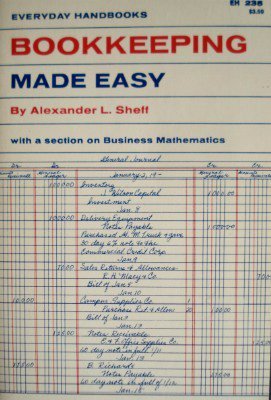 EVERYDAY HANDBOOKS
EH 238
$3.50
BOOKKEEPING
MADE EASY
By Alexander L. Sheff
with a section on Business Mathematics
General Journal
Dr. Dr. Cr. Cr.
General Ledger January 2, 19-
1000 00 Inventory
J. Wilson Capital 1000 00
Investment
Jan. 8
1000 00 Delivery Equipment
Notes Payable
Purchased G.M. Truck & gave
30 day 6% note to the
Commercial Credit Corp.
Jan 9
70 00 Sales Returns & Allowances
R. H. Macy & Co. 70 0
Bill of Jan 5
Jan 10
100 00 Campus Supplies Co
Purchase Ret & Allow 20 100 00
Bill of Jan 7
Jan 12
125 00 Notes Receivable
Office Supplies Co. 125 0
60 day note in full 1/11
Jan 13
B. Richards
Notes Payable
60 day note in full of 1/12
Jan 15